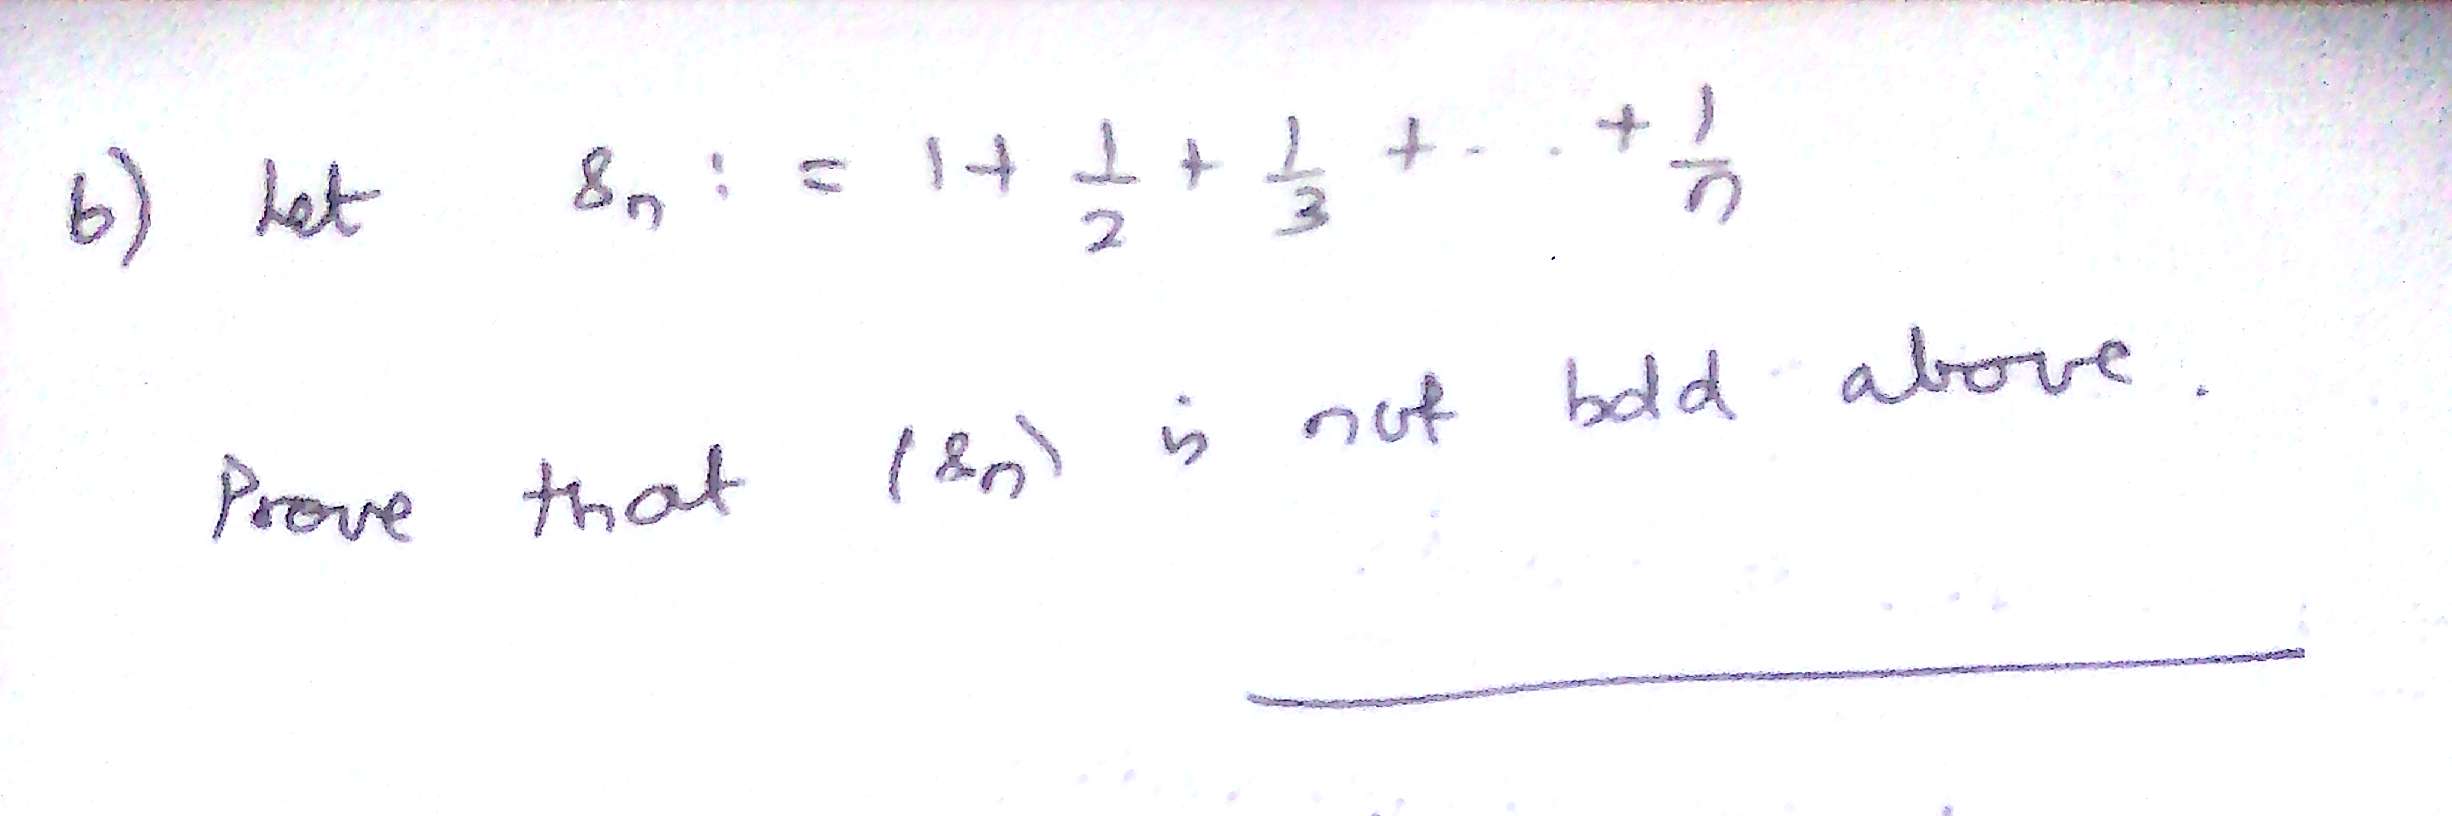 b) Let sₙ := 1 + 1/2 + 1/3 + ... + 1/n
Prove that (sₙ) is not bdd above.